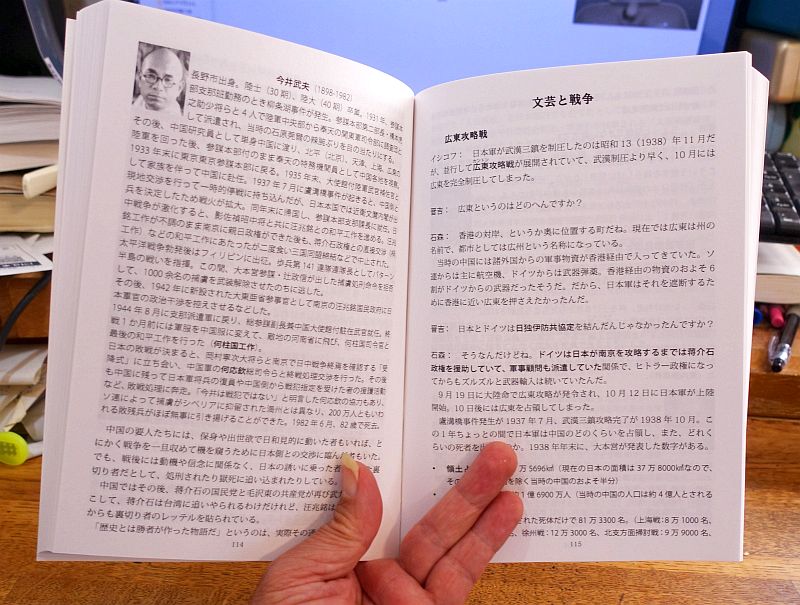 今井武夫 (1898-1982)
長野市出身。陸士（30期）、陸大（40期）卒業。1931年、参謀本
部支那班勤務のとき柳条湖事件が発生。参謀本部第二部長・橋本虎
之助少将らと4人で陸軍中央部から奉天の関東軍司令部に調査団と
して派遣され、当時の石原莞爾の辣腕ぶりを目の当たりにする。
その後、中国研究員として単身中国に渡り、北平（北京）、天津、上海、広東の
陸軍を回った後、参謀本部付のまま奉天の特務機関員として中国各地を視察。
1933年末に東京東京参謀本部に戻る。1935年末、大使館付陸軍武官補佐官と
して家族を伴って中国に赴任。1937年7月に盧溝橋事件が起きると、中国側と
現地交渉を行って一時的停戦に持ち込んだが、日本本国では近衛文麿内閣が出
兵を決定したため戦火が拡大。同年末に帰国し、参謀本部支那課長に就任。日
中戦争が激化すると、影佐禎昭中将と共に汪兆銘との和平工作を進める。汪兆
銘工作が不調のまま南京に親日政権ができた後も、蒋介石政権との直接交渉（桐
工作）などの和平工作にあたったが二度食い三国同盟締結などで中止された。
太平洋戦争勃発後はフィリピンに出征。歩兵第141連隊連隊長としてバターン
半島の戦いを指揮。この間、大本営参謀・辻政信が出した捕虜処刑命令を拒否
して、1000余名の捕虜を武装解除させたのちに逃した。
その後、1942年に新設された大東亜省参事官として南京の汪兆銘国民政府に日
本軍官の政治干渉を控えさせるなどした。
1944年8月に支那派遣軍に戻り、総参謀副長兼中国大使館付駐在武官就任。終
戦1か月前には軍服を中国服に変えて、敵地の河南省に飛び、何柱国司令官と
最後の和平工作を行った（何柱国工作）。
日本の敗戦が決まると、岡村寧次大将らと南京で日中戦争終焉を確認する「受
降式」に立ち会い、中国軍の何応欽総司令らと終戦処理交渉を行った。その後
も中国に残って日本軍将兵の復員や中国側から戦犯指定を受けた者の援護活動
など、敗戦処理に奔走。「今井は戦犯ではない」と明言した何応欽の協力もあり、
ソ連によって捕虜がシベリアに抑留された満州とは異なり、200万人ともいわ
れる敗残兵がほぼ無事に引き揚げることができた。1982年6月、82歳で死去。
中国の要人たちには、保身や出世欲で日和見的に動いた者もいれば、と
にかく戦争を一旦収めて機を窺うために日本側との交渉に臨んだ者もいた。
でも、戦後には動機や信念に関係なく、日本の誘いに乗った者
裏
切り者だとして、処刑されたり獄死に追い込まれたりしている。
中国ではその後、蒋介石の国民党と毛沢東の共産党が再び武
こして、蒋介石は台湾に追いやられるわけだけれど、汪兆銘は
からも裏切り者のレッテルを貼られている。
「歴史とは勝者が作った物語だ」というのは、実際その通
114
文芸と戦争
広東攻略戦
イシコフ： 日本軍が武漢三鎮を制圧したのは昭和13（1938）年11月だ
が、並行して広東攻略戦が展開されていて、武漢制圧より早く、10月には
広東を完全制圧してしまった。
晋吉： 広東というのはどのへんですか？
石森： 香港の対岸、というか奥に位置する町だね。現在では広東は州の
名前で、都市としては広州という名称になっている。
当時の中国には諸外国からの軍事物資が香港経由で入ってきていた。ソ
連からは主に航空機、ドイツからは武器弾薬。香港経由の物資のおよそ6
割がドイツからの武器だったそうだ。だから、日本軍はそれを遮断するため
に香港に近い広東を押さえたかったんだ。
晋吉： 日本とドイツは日独伊防共協定を結んだんじゃなかったんですか？
石森： そうなんだけどね。ドイツは日本が南京を攻略するまでは蒋介石
政権を援助していて、軍事顧問も派遣していた関係で、ヒトラー政権になっ
てからもズルズルと武器輸入は続いていたんだ。
9月19日に大陸命で広東攻略が発令され、10月12日に日本軍が上陸
開始。10日後には広東を占領してしまった。
盧溝橋事件発生が1937年7月、武漢三鎮攻略完了が1938年10月。こ
の1年ちょっとの間で日本軍は中国のどのくらいを占領し、また、どれく
らいの死者を出
。1938年年末に、大本営が発表した数字がある。
• 領土占
5696㎢（現在の日本の面積は37万8000㎢なので、
その
を除く当時の中国のおよそ半分）
•
約1億6900万人（当時の中国の人口は約4億人とされる
された死体だけで81万3300名。（上海戦：8万1000名、
名、徐州戦：12万3000名、北支方面掃討戦：9万9000名、
115